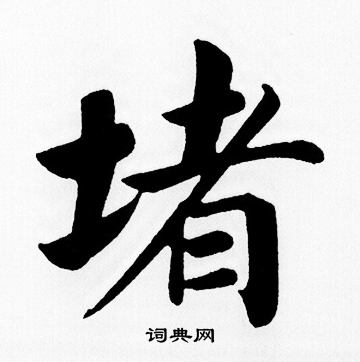 堵
词典网